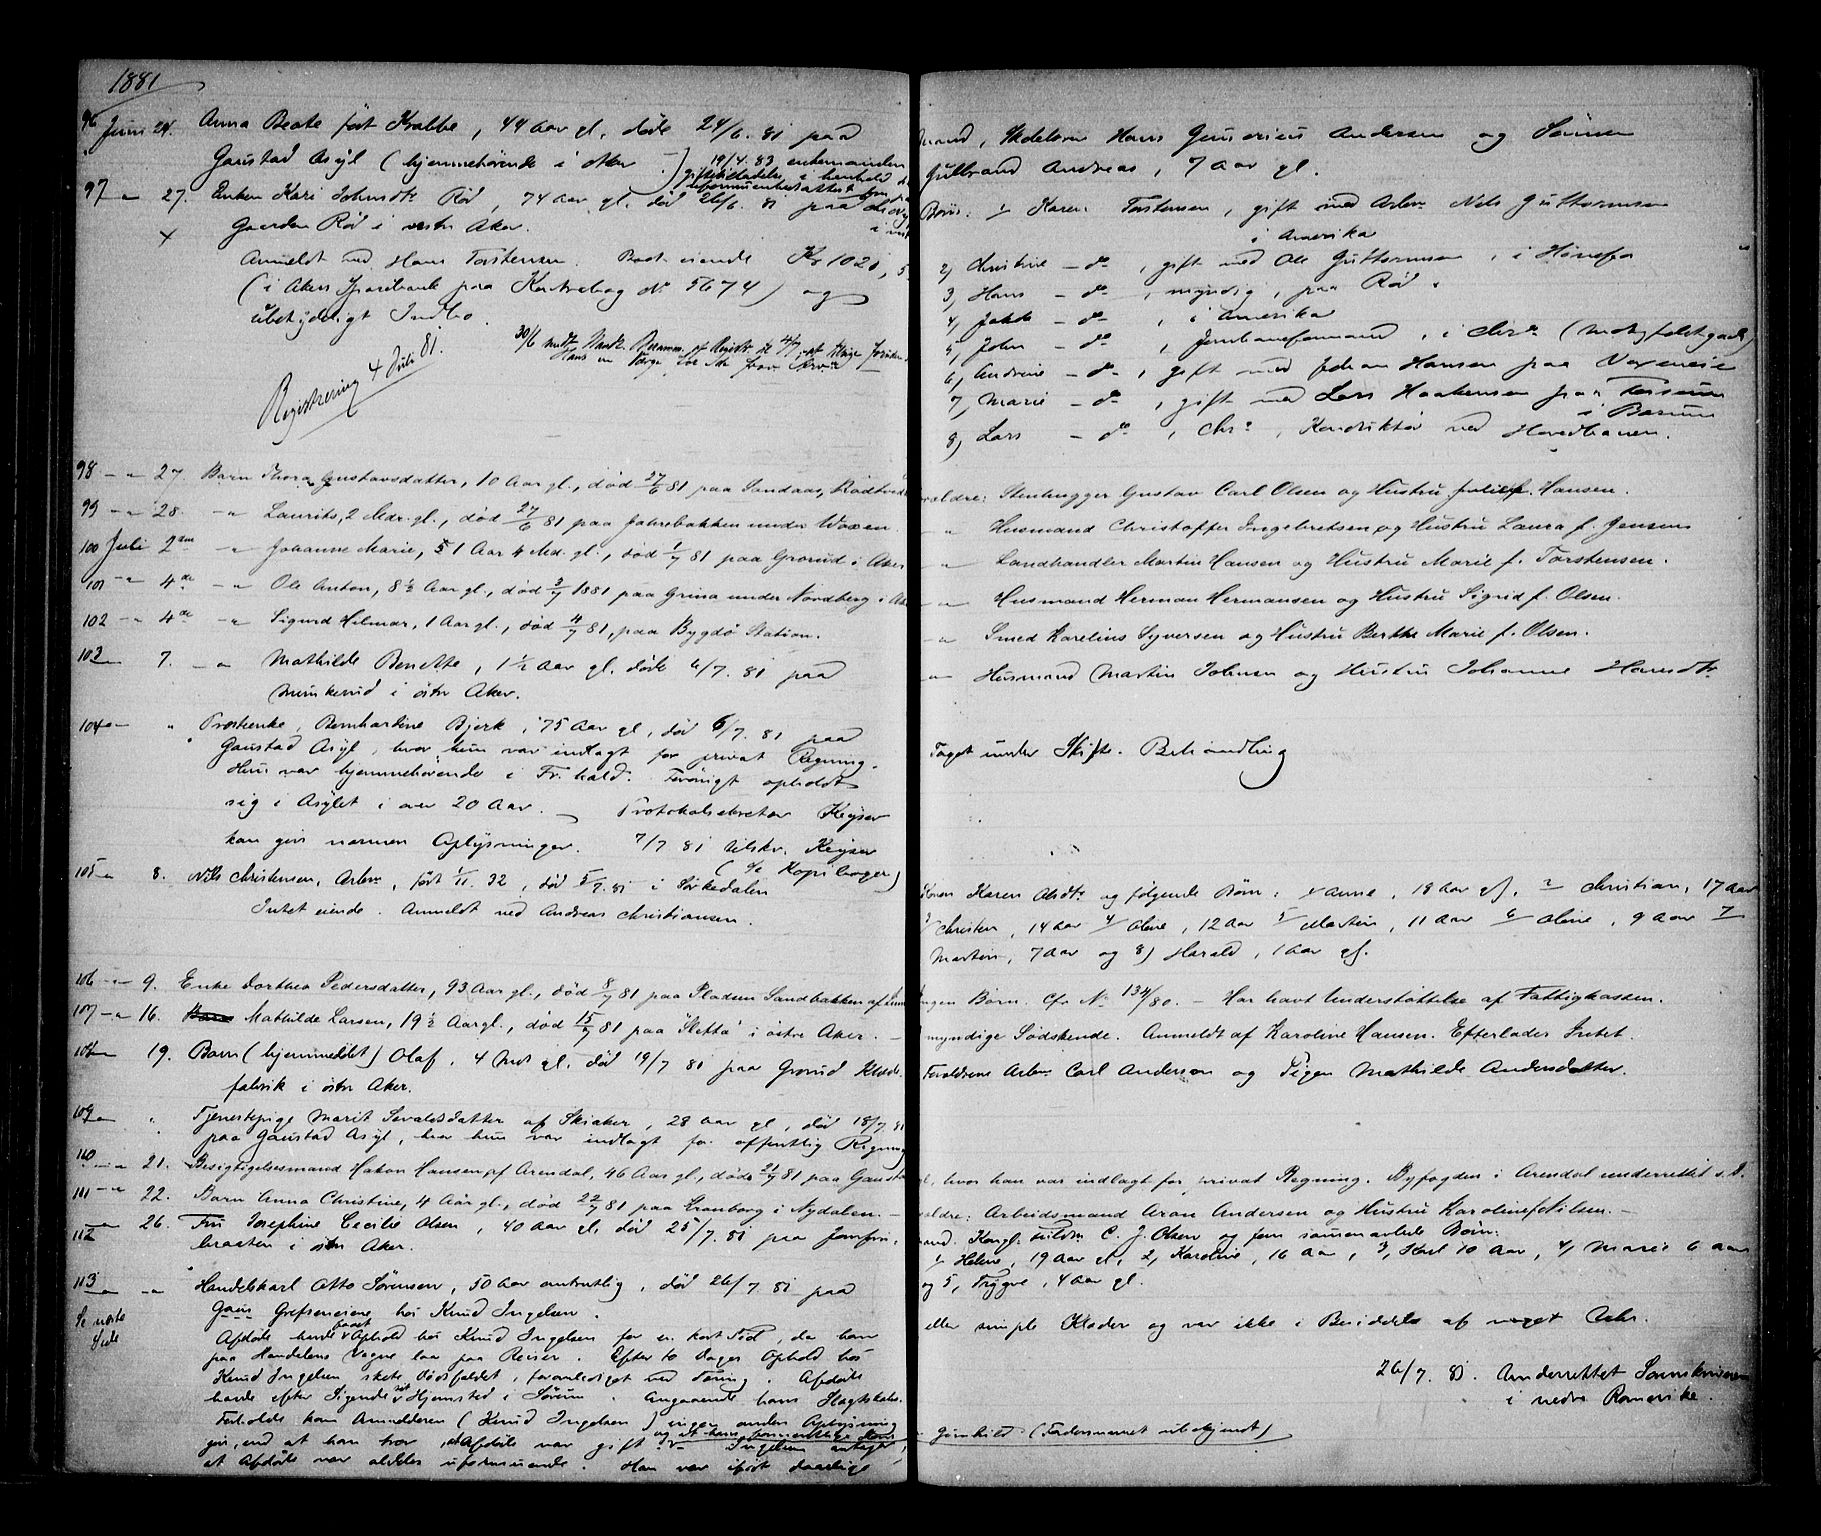 1881
96 Juni 24. Anna Beate født Krabbe, 44 Aar gl. døde 24/6. 81 paa
Gaustad Asyl (hjemmehørende i Aker
19/4. 83 enkemanden
97 - " - 27. Enken Kari Johnsdtr Rød, 74 Aar gl. død 26/6. 81 paa
Gaarden Rød i vestre Aker.
Anmeldt ved Hans Torstensen. Boet eiende Kr 1020, 5
(i Akers Sparebank paa Kontrabog No 5674) og
ubetydeligt Indbo.
Registrering 4 Juli 81.
98 - " - 27. Barn Thora Gustavsdatter, 10 Aar gl., død 27/6 81 paa Sandaas, Rødtvedt
99 - " 28. - " - Laurits, 2 Mdr. gl., død 27/6 81 paa Jahrebakken under Voxen.
100 Juli 2den - " - Johanne Marie, 1 Aar 4 Md. gl., død 1/7 81 paa Grorud i Aker
101 - " 4de - " - Ole Anton, 8 1/2 Aar gl., død 3/7 1881 paa Grina under Nordberg i Ak
102 - " 4de - " - Sigurd Hilmar, 1 Aar gl., død 4/7 81, paa Bygdø Station.
103 7. - " Mathilde Benette, 1 1/2 Aar gl. døde 6/7. 81 paa
Munkerud i østre Aker.
104 - " - " Provstienke, Bernhardine Bjerk, 75 Aar gl, død 6/7. 81 paa
Gaustad Asyl, hvor hun var indlagt for privat Regning.
Hun var hjemmehørende i Fr.hald. Forøvrigt opholdt
sig i Asylet i over 20 Aar. - Protokolsekretær Keyser
kan give nærmere Oplysninger. 7/7 81 tilskr. Keyser
(cfr Kopibogen)
105 " 8. Nils Christensen, Arbm, født 1/11. 32, død 5/7. 81 i Sørkedalen
Intet eiende. Anmeldt ved Andreas Christiansen.
106 - " - 9. Enke Dorthea Pedersdatter, 93 Aar gl., død 8/7 81 paa Pladsen Sandbakken af
107 - " 16. Mathilde Larsen, 19 1/2 Aar gl., død 15/7 81 paa "Sletta" i østre Aker. -
108 19. Barn (hjemmedøbt) Olaf, 4 Mdr gl. død 19/7 81 paa Grorud Klæde-
fabrik i østre Aker.
109 - " Tjenestepige Marit Sevaldsdatter af Skiaker, 28 Aar gl, død 18/7 81
paa Gaustad Asyl, hvor hun var indlagt for offentlig Regning
110 - " - 21. Besigtigelsesmand Hakon Hansen, af Arendal, 46 Aar gl., døde 21/7 81 paa Gausta
101 - " 22. Barn Anna Christine, 4 Aar gl., død 22/7 81 paa Kronborg i Nydalen. -
112 - " 26. Fru Josephine Cecilie Olsen, 40 Aar gl, død 25/7. 81 paa Jomfru-
braaten i østre Aker.
113 - " - " Handelskarl Otto Sørensen, 50 Aar omtrentlig, død 26/7. 81 paa
Se næste Side
Grefseneiene hos Knud Ingelsen.
Afdøde havde faaet Ophold hos Knud Ingelsen for en kort Tid, da han
paa Handelens Vegne laa paa Reiser. Efter 10 Dages Ophold hos
Knud Ingelsen skete Dødsfaldet, foranlediget ved Tæring. Afdøde
havde efter Sigende sit Hjemsted i Sørum. Angaaende hans Slægtskabs-
Forholde kan Anmelderen (Knud Ingelsen) ingen anden Oplysning
give, end at han tror, at Afdøde var gift. Ingelsen antager,
at Afdøde var aldeles uformuende. Han var iført daarlige
mand, Skolelærer Hans Andersen og Sønnen
Gulbrand Andreas, 7 Aar gl.
Børn: 1/ Karen Torstensen, gift med Arbm Nils Guttormsen
i Amerika
2, Christine - do, gift med Ole Guttormsen, i Hønefos
3, Hans - do, myndig, paa Rød.
4, Jakob - do, i Amerika
5, John - do, Jernbaneformand, i Chra
6, Andrine - do, gift med Johan Hansen paa Voxeneie
7, Marie - do, gift med Lars Haakensen paa
i Bærum
8, Lars - do, Chra, Konduktør ved Hovedbanen.
Forældre: Stenhugger Gustav Carl Olsen og Hustru Julie f. Hansen.
- " Husmand Christoffer Ingebretsen og Hustru Laura f. Jensen
- " Landhandler Martin Hansen og Hustru Marie f. Torstensen.
- " Husmand Herman Hermansen og Hustru Sigrid f. Olsen.
- " Smed Karelius Syversen og Hustru Berthe Marie f. Olsen.
- " Husmand Martin Johnsen og Hustru Johanne Hansdtr
Taget under Skifte-Behandling
Konen Karen Olsdtr og følgende Børn: 1/ Anne, 18 Aar gl, 2/ Christian, 17 Aar
3/ Christen, 14 Aar 4/ Oline, 12 Aar 5/ Martin, 11 Aar 6/ Oline, 9 Aar 7/
Martin, 7 Aar og 8) Harald, 1 Aar gl.
Ingen Børn. Cfr No 134/80. - Har havt Understøttelse af Fattigkassen.
myndige Sødskende. Anmeldt af Karoline Hansen. Efterlader Intet.
Forældrene Arbm Carl Anderson og Pigen Mathilde Andersdatter.
hvor han var indlagt for privat Regning. Byfogden i Arendal underrettet s. D.
Forældre: Arbeidsmand Aron Andersen og Hustru Karoline f. Nilsen. -
mand. Kongl. C. J. Olsen og fem sammenavlede Børn:
1/ Helene, 19 Aar gl, 2, Karoline, 16 Aar, 3, Karl 10 Aar, 4, Marie 6 Aar
og 5, Trygve, 4 Aar gl.
eller simple Klæder og var ikke i Besiddelse af noget Ur.
26/7. 81. Underrettet Sorenskriveren
i nedre Romerike.
Gunhild (Fadersnavnet ubekjendt)